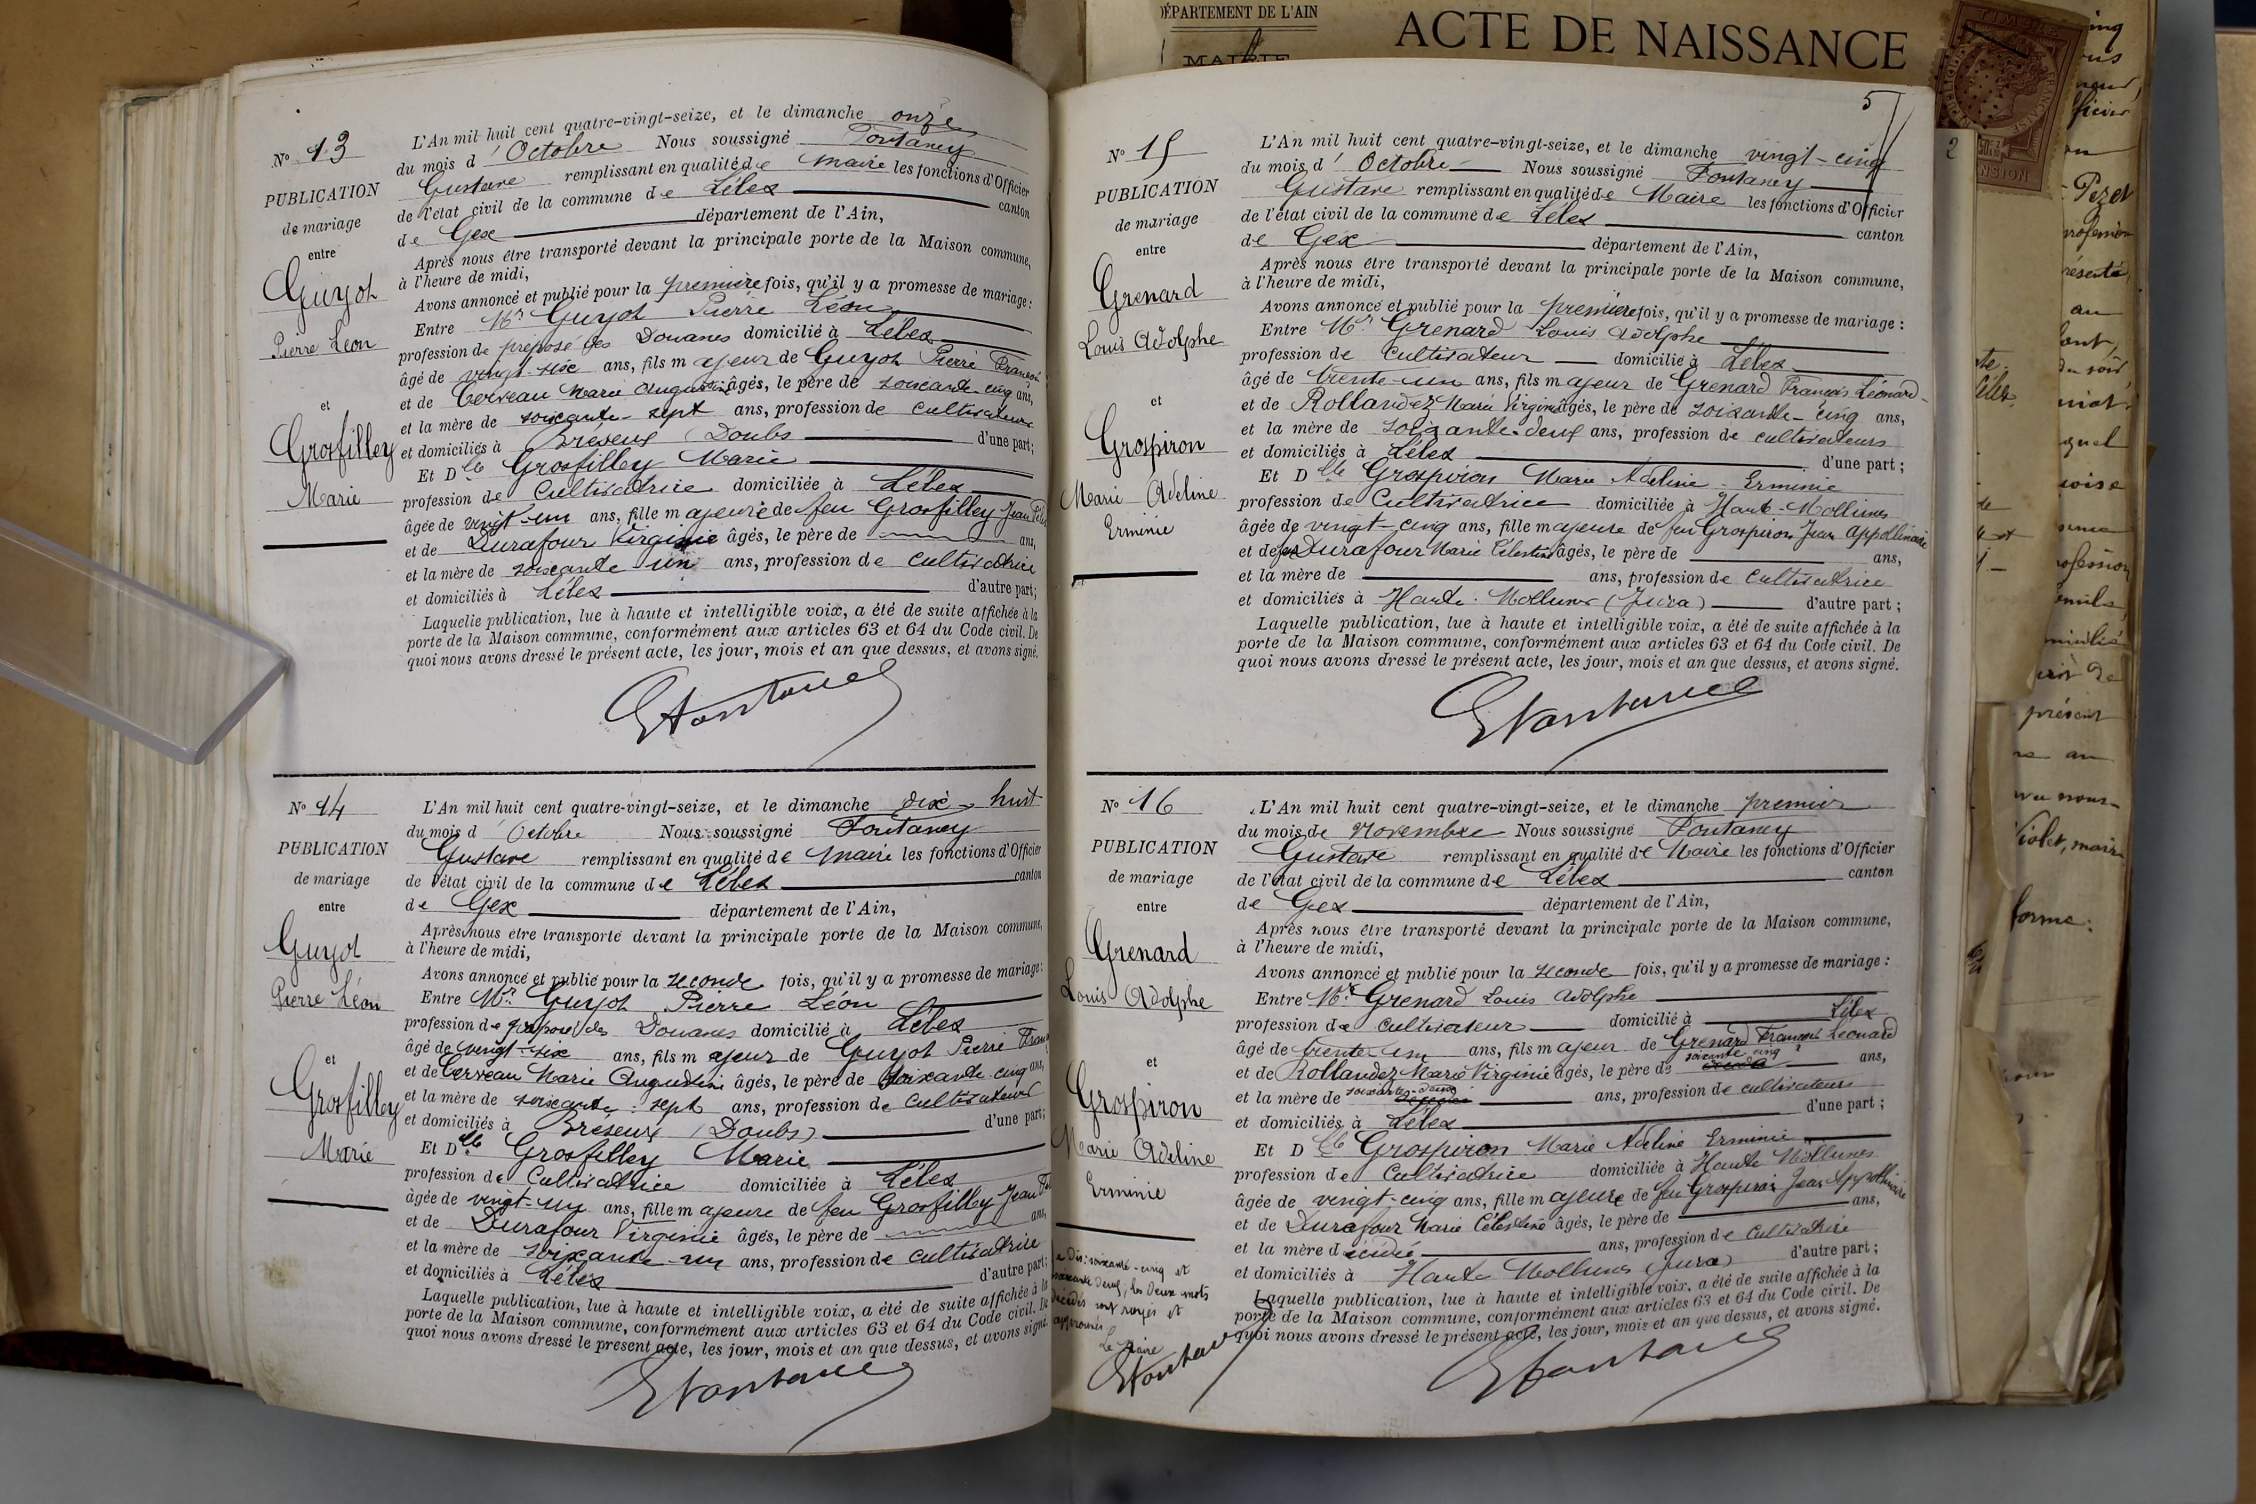 N° 13
PUBLICATION
de mariage
entre
Guyot
Pierre Léon
et
Grosfilley
Marie
L'An mil huit cent quatre-vingt-seize, et le dimanche onze
du mois d' Octobre Nous soussigné Fontaney
Gustave remplissant en qualité de maire les fonctions d'Officier
de l'état civil de la commune de Lélex canton
de Gex département de l'Ain,
Après nous être transporté devant la principale porte de la Maison commune,
à l'heure de midi,
Avons annoncé et publié pour la première fois, qu'il y a promesse de mariage :
Entre Mr Guyot Pierre Léon
profession de préposé des Douanes domicilié à Lélex
âgé de vingt-six ans, fils majeur de Guyot Pierre François
et de Cerveau Marie Augustine âgés, le père de soixante-cinq ans,
et la mère de soixante-sept ans, profession de cultivateurs
et domiciliés à Bréseux (Doubs d'une part ;
Et Dlle Grosfilley Marie
profession de Cultivatrice domiciliée à Lélex
âgée de vingt-un ans, fille majeure de feu Grosfilley Jean
et de Durafour Virginie âgés, le père de ans,
et la mère de soixante un ans, profession de cultivatrice
et domiciliés à Lélex d'autre part ;
Laquelle publication, lue à haute et intelligible voix, a été de suite affichée à la
porte de la Maison commune, conformément aux articles 63 et 64 du Code civil. De
quoi nous avons dressé le présent acte, les jour, mois et an que dessus, et avons signé.
GFontaney
N° 14
PUBLICATION
de mariage
entre
Guyot
Pierre Léon
et
Grosfilley
Marie
L'An mil huit cent quatre-vingt-seize, et le dimanche dix-huit
du mois d' Octobre Nous soussigné Fontaney
Gustave remplissant en qualité de maire les fonctions d'Officier
de l'état civil de la commune de Lélex canton
de Gex département de l'Ain,
Après nous être transporté devant la principale porte de la Maison commune,
à l'heure de midi,
Avons annoncé et publié pour la seconde fois, qu'il y a promesse de mariage :
Entre Mr Guyot Pierre Léon
profession de préposé des Douanes domicilié à Lélex
âgé de vingt-six ans, fils majeur de Guyot Pierre
et de Cerveau Marie Augustine âgés, le père de soixante-cinq ans,
et la mère de soixante-sept ans, profession de cultivateurs
et domiciliés à Bréseux (Doubs) d'une part ;
Et Dlle Grosfilley Marie
profession de Cultivatrice domiciliée à Lélex
âgée de vingt-un ans, fille majeure de feu Grosfilley Jean
et de Durafour Virginie âgés, le père de ans,
et la mère de soixante-un ans, profession de cultivatrice
et domiciliés à Lélex d'autre part ;
Laquelle publication, lue à haute et intelligible voix, a été de suite affichée à la
porte de la Maison commune, conformément aux articles 63 et 64 du Code civil. De
quoi nous avons dressé le présent acte, les jour, mois et an que dessus, et avons signé.
GFontaney
DÉPARTEMENT DE L'AIN
MAIRIE
ACTE DE NAISSANCE
5
N° 15
PUBLICATION
de mariage
entre
Grenard
Louis Adolphe
et
Grospiron
Marie Adeline
Erminie
L'An mil huit cent quatre-vingt-seize, et le dimanche vingt-cinq
du mois d' Octobre Nous soussigné Fontaney
Gustave remplissant en qualité de Maire les fonctions d'Officier
de l'état civil de la commune de Lélex canton
de Gex département de l'Ain,
Après nous être transporté devant la principale porte de la Maison commune,
à l'heure de midi,
Avons annoncé et publié pour la première fois, qu'il y a promesse de mariage :
Entre Mr Grenard Louis Adolphe
profession de Cultivateur domicilié à Lélex
âgé de trente-un ans, fils majeur de Grenard François Léonard
et de Rollandez Marie Virginie âgés, le père de soixante-cinq ans,
et la mère de soixante-deux ans, profession de cultivateurs
et domiciliés à Lélex d'une part ;
Et Dlle Grospiron Marie Adeline Erminie
profession de Cultivatrice domiciliée à Haute-Mollunes
âgée de vingt-cinq ans, fille majeure de feu Grospiron Jean Appollinaire
et de feu Durafour Marie Célestine âgés, le père de ans,
et la mère de ans, profession de cultivatrice
et domiciliés à Haute-Mollunes (Jura) d'autre part ;
Laquelle publication, lue à haute et intelligible voix, a été de suite affichée à la
porte de la Maison commune, conformément aux articles 63 et 64 du Code civil. De
quoi nous avons dressé le présent acte, les jour, mois et an que dessus, et avons signé.
GFontaney
N° 16
PUBLICATION
de mariage
entre
Grenard
Louis Adolphe
et
Grospiron
Marie Adeline
Erminie
L'An mil huit cent quatre-vingt-seize, et le dimanche premier
du mois de Novembre Nous soussigné Fontaney
Gustave remplissant en qualité de Maire les fonctions d'Officier
de l'état civil de la commune de Lélex canton
de Gex département de l'Ain,
Après nous être transporté devant la principale porte de la Maison commune,
à l'heure de midi,
Avons annoncé et publié pour la seconde fois, qu'il y a promesse de mariage :
Entre Mr Grenard Louis Adolphe
profession de cultivateur domicilié à Lélex
âgé de trente-un ans, fils majeur de Grenard François Léonard
et de Rollandez Marie Virginie âgés, le père de soixante cinq ans,
et la mère de soixante-deux ans, profession de cultivateurs
et domiciliés à Lélex d'une part ;
Et Dlle Grospiron Marie Adeline Erminie
profession de Cultivatrice domiciliée à Haute Mollunes
âgée de vingt-cinq ans, fille majeure de feu Grospiron Jean Appollinaire
et de Durafour Marie Célestine âgés, le père de ans,
et la mère décédée ans, profession de Cultivatrice
et domiciliés à Haute Mollunes (Jura) d'autre part ;
Laquelle publication, lue à haute et intelligible voix, a été de suite affichée à la
porte de la Maison commune, conformément aux articles 63 et 64 du Code civil. De
quoi nous avons dressé le présent acte, les jour, mois et an que dessus, et avons signé.
GFontaney
dis: soixante-cinq et
soixante deux, les deux mots
décédés sont rayés et
approuvés
Le Maire
GFontaney
2
Pezet
profession
au
présent
Violet, maire
forme.